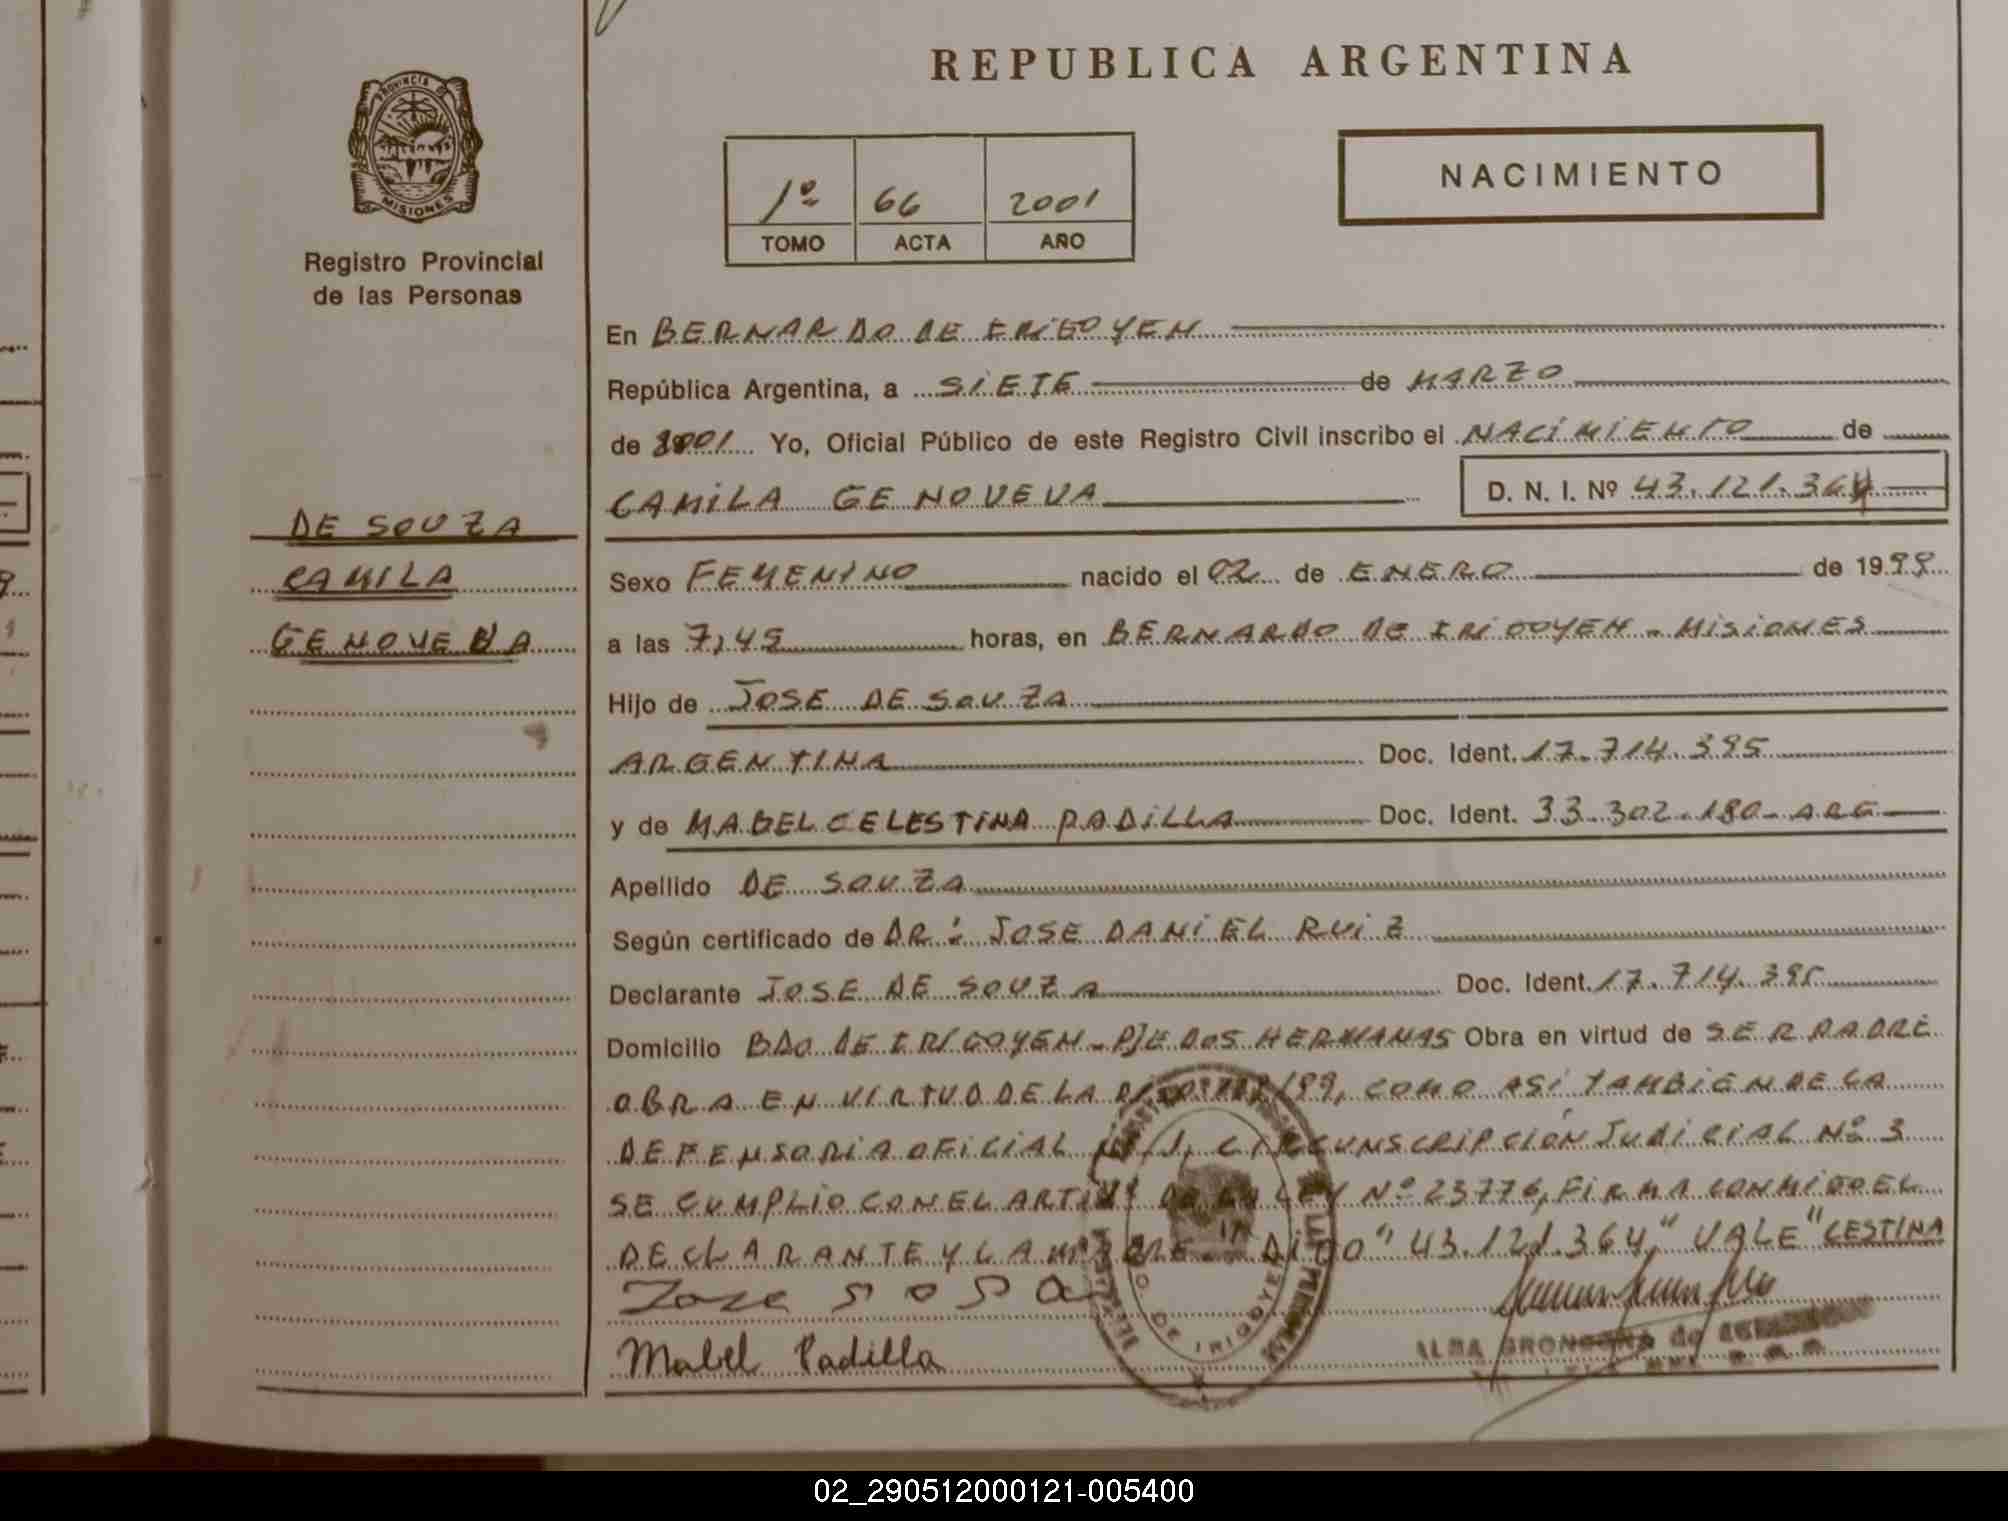 REPUBLICA ARGENTINA
PROVINCIA D
MISIONES
Registro Provincial
de las Personas
1º 66 2001
TOMO ACTA AÑO
NACIMIENTO
En BERNARDO DE IRIGOYEN
República Argentina, a SIETE de MARZO
de 2001 Yo, Oficial Público de este Registro Civil inscribo el NACIMIENTO de
CAMILA GENOVEVA D. N. I. Nº 43.121.364
DE SOUZA
CAMILA
GENOVEVA
Sexo FEMENINO nacido el 02 de ENERO de 1999
a las 7,45 horas, en BERNARDO DE IRIGOYEN - MISIONES
Hijo de JOSE DE SOUZA
ARGENTINA Doc. Ident. 17.714.395
y de MABEL CELESTINA PADILLA Doc. Ident. 33.302.180 - ARG
Apellido DE SOUZA
Según certificado de DR: JOSE DANIEL RUIZ
Declarante JOSE DE SOUZA Doc. Ident. 17.714.395
Domicilio BDO DE IRIGOYEN - PJE DOS HERMANAS Obra en virtud de SER PADRE
OBRA EN VIRTUD DE LA /99, COMO ASI TAMBIEN DE LA
DEFENSORIA OFICIAL Nº 1, CIRCUNSCRIPCIÓN JUDICIAL Nº 3
SE CUMPLIO CON EL ART DE LA LEY Nº 23776, FIRMA CONMIGO EL
DECLARANTE Y LA MADRE - DIGO "43.121.364," VALE "CESTINA
Jose sosa
Mabel Padilla
DE IRIGOYEN
ALBA de
02_290512000121-005400